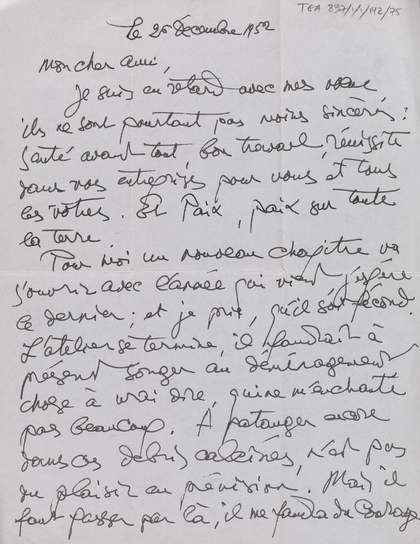 TGA 897/1/1/112/75
Le 26 décembre 1952
Mon cher ami,
Je suis en retard avec mes vœux
ils ne sont pourtant pas moins sincères :
Santé avant tout, bon travail, réussite
dans vos entreprises pour vous et tous
les vôtres. Et Paix, paix sur toute
la terre.
Pour moi un nouveau chapitre va
s'ouvrir avec l'année qui vient j'espère
le dernier ; et je prie, qu'il soit fécond.
L'atelier se termine, il faudrait à
présent songer au déménagement
chose à vrai dire, qui ne m'enchante
pas beaucoup. A patauger encore
dans ces débris calcinés, n'est pas
du plaisir en prévision. Mais il
faut passer par là, il me faudra du